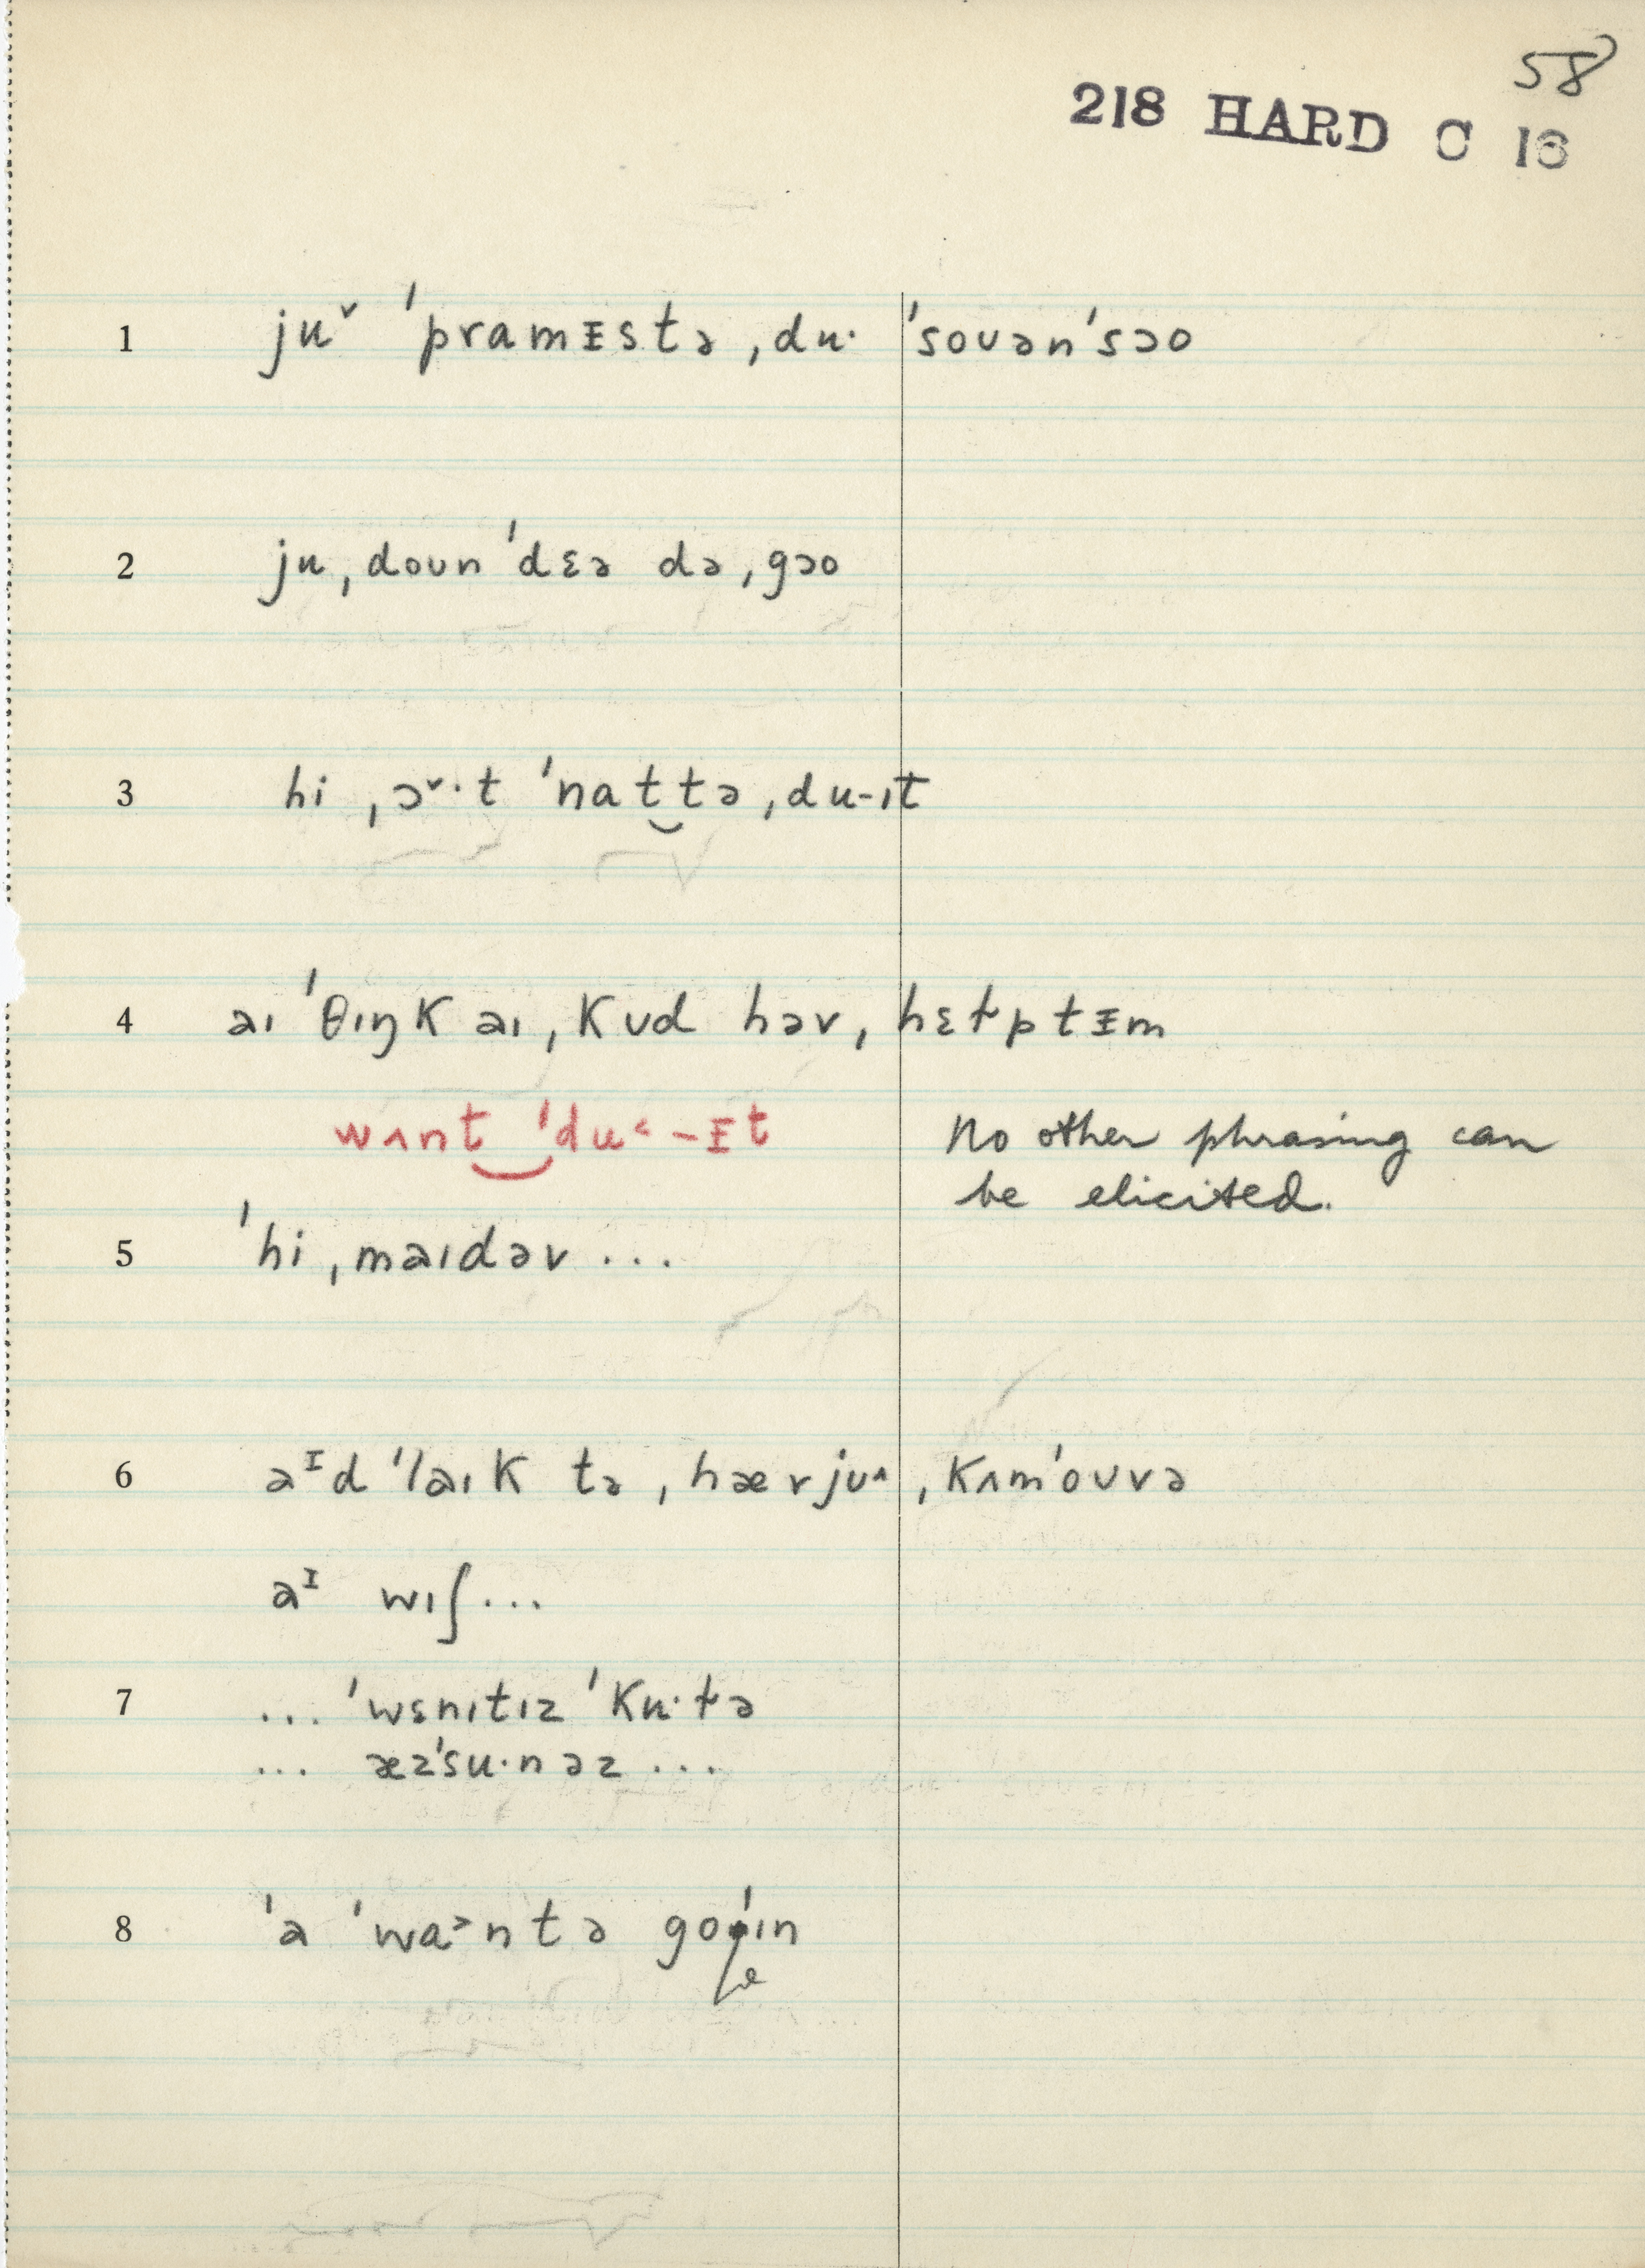 58
218 HARD C 16
1 juˇ ˈpramɪstə ˌdu· ˈsoʊənˈsɔo
2 ju ˌdoʊn ˈdɛə də ˌgɔo
3 hi ˌɔˇ·t ˈnat‿tə ˌdu-ıt
4 aı ˈθıŋk aı ˌkʊd həv ˌhɛɫptɪm
wʌnt‿ˈdu˂-ɪt No other phrasing can
be elicited.
5 ˈhi ˌmaıdəv ...
6 aᴵd ˈlaık tə ˌhævjʊ^ ˌkʌmˈoʊvə
aᴵ wıʃ ...
7 ... ˈwɛnıtız ˈku·ɫə
... æzˈsu·nəz ...
8 ˈa ˈwa˃ntə goˈın